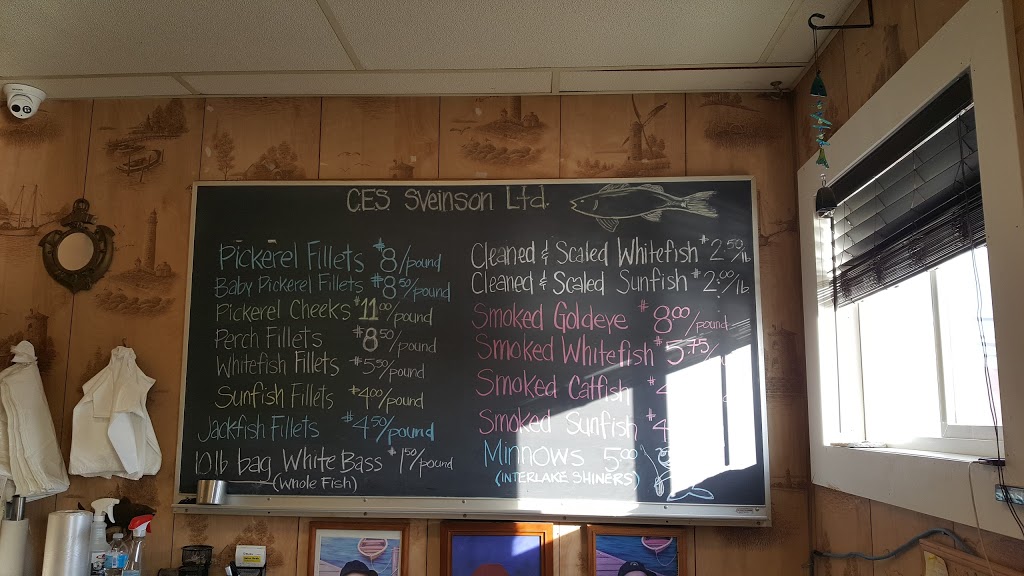 C.E.S. Sveinson Ltd.
Pickerel Fillets $8/pound
Baby Pickerel Fillets $8.50/pound
Pickerel Cheeks $11.00/pound
Perch Fillets $8.50/pound
Whitefish Fillets $5.50/pound
Sunfish Fillets $4.00/pound
Jackfish Fillets $4.50/pound
10 lb bag White Bass $1.50/pound
(Whole Fish)
Cleaned & Scaled Whitefish $2.50/lb
Cleaned & Scaled Sunfish $2.00/lb
Smoked Goldeye $8.00/pound
Smoked Whitefish $5.75/
Smoked Catfish $4
Smoked Sunfish $4
Minnows 5.00
(INTERLAKE SHINERS)